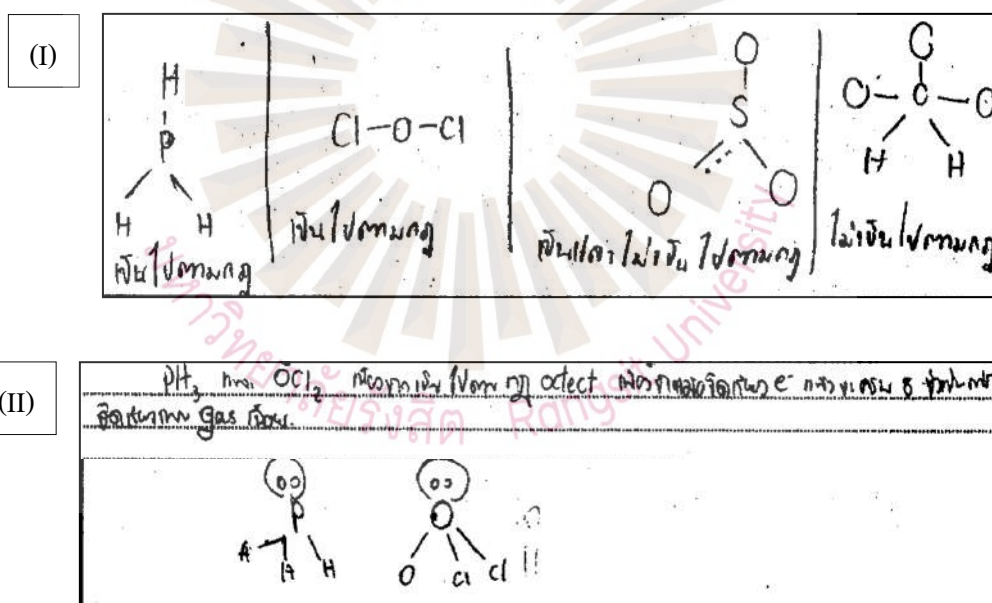 (I)
H
P
H H
เป็นไปตามกฎ
Cl-O-Cl
เป็นไปตามกฎ
O
S
O O
เป็นและไม่เป็นไปตามกฎ
C
O-C-O
H H
ไม่เป็นไปตามกฎ
(II)
PH3 และ OCl2 เนื่องจากเป็นไปตามกฎ octect e- 8
gas เฉื่อย.
P
H H
O
O Cl Cl
มหาวิทยาลัยรังสิต Rangsit University